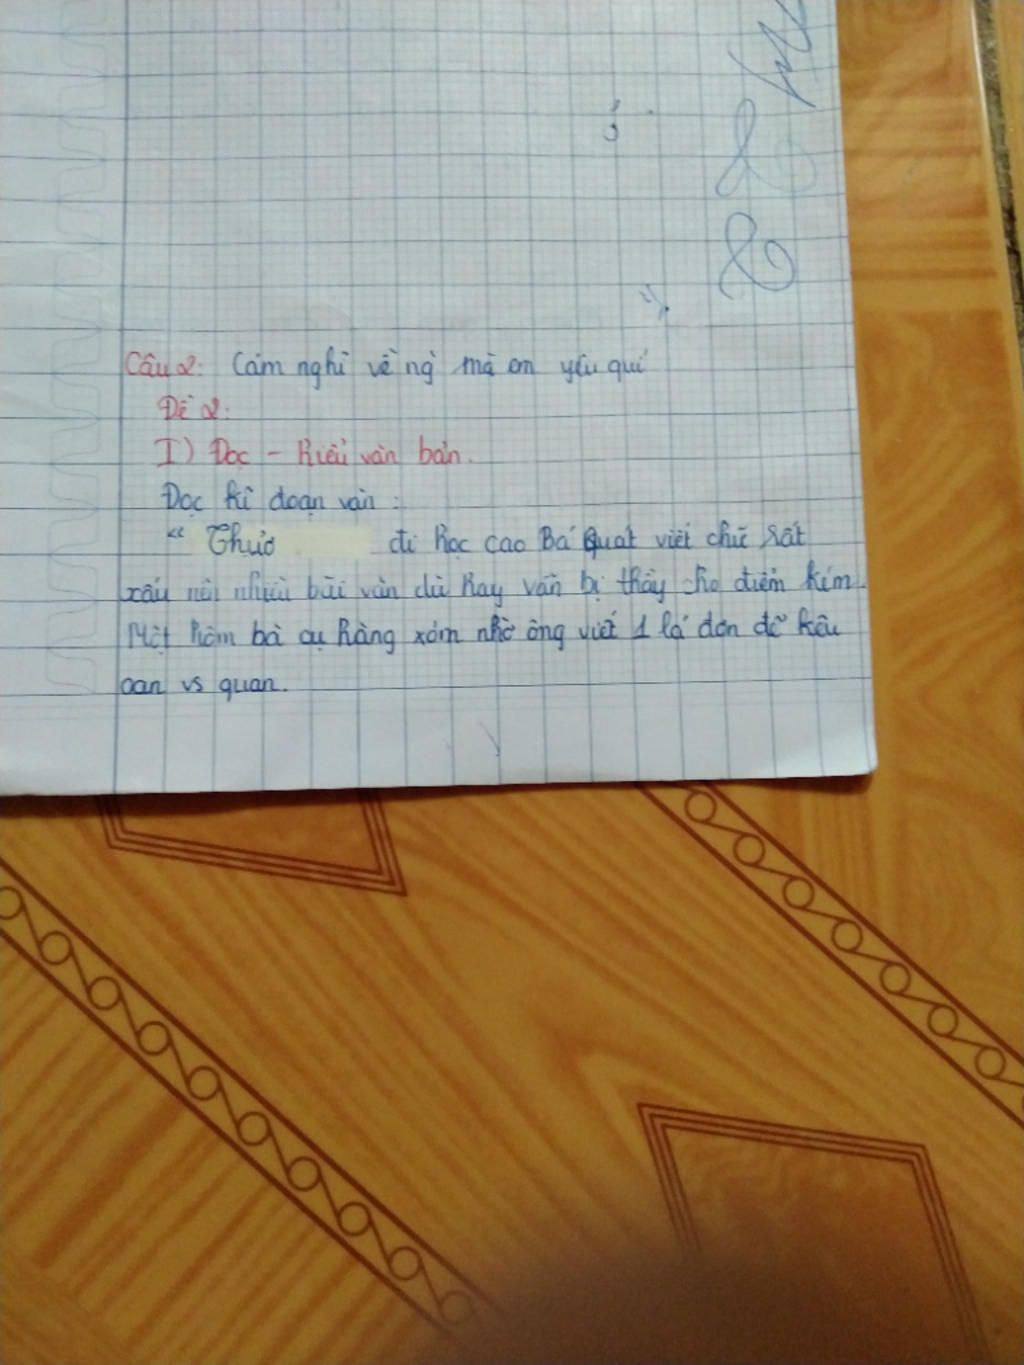 Câu 2: Cảm nghĩ về ng` mà em yêu quí
Đề 2:
I) Đọc - hiểu văn bản.
Đọc kĩ đoạn văn:
“ Thuở đi học Cao Bá Quát viết chữ rất
xấu nên nhiều bài văn dù hay vẫn bị thầy cho điểm kém.
Một hôm bà cụ hàng xóm nhờ ông viết 1 lá đơn để kêu
oan vs quan.